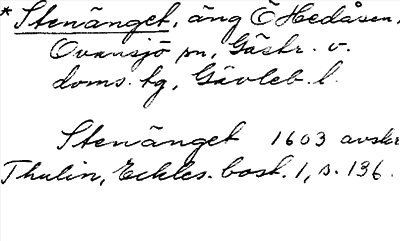 * Stenänget, äng Ö Hedåsen,
Ovansjö sn, Gästr. v.
doms. tg, Gävleb. l.
Stenänget 1603 avskr
Thulin, Eckles. bost. 1, s. 136.